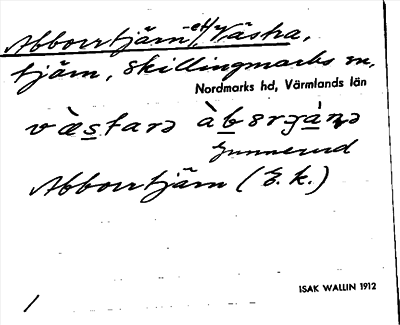 Abborrtjärn-et, Västra,
tjärn, Skillingmarks sn,
Nordmarks hd, Värmlands län
Gunnerud
Abborrtjärn (E. k.)
ISAK WALLIN 1912
/